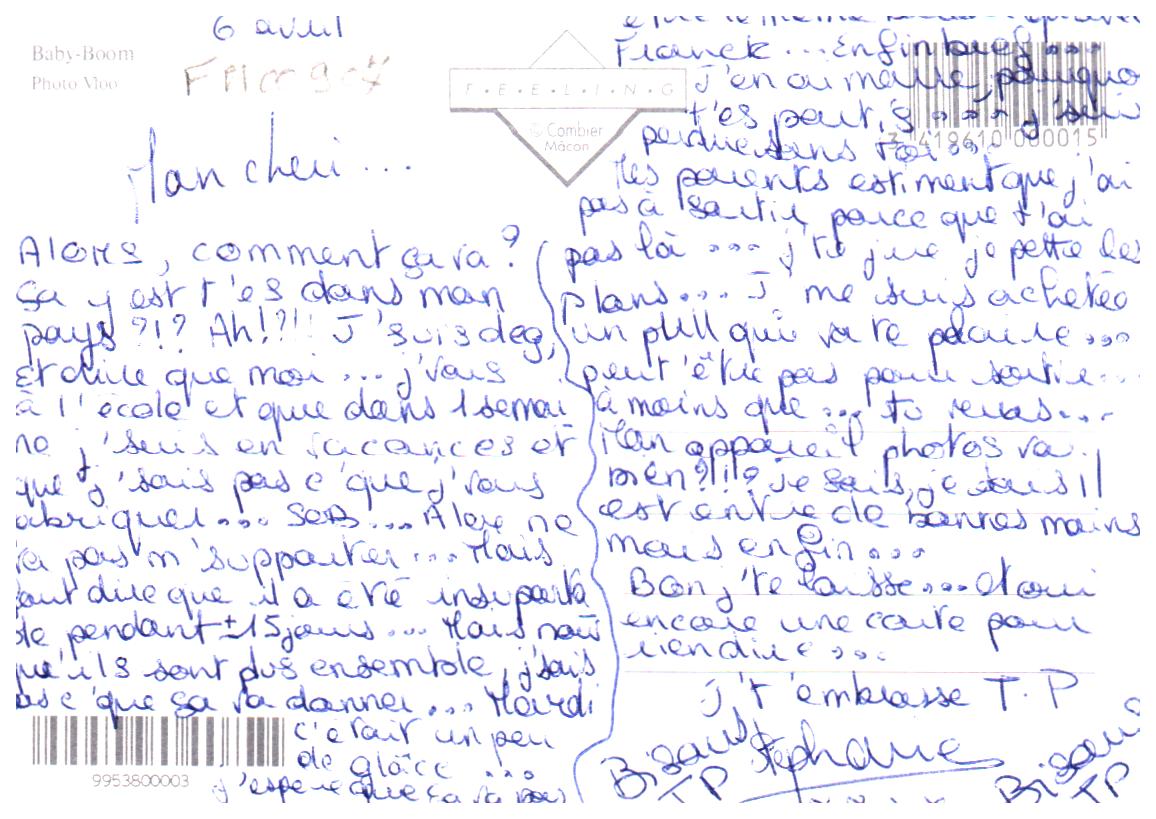 6 avril
Baby-Boom
Photo Moo
F·E·E·L·I·N·G
© Combier
Mâcon
Mon cheri...
Alors, comment ça va?
ça y est t'es dans mon
pays ?!? Ah!?!! J'suis deg,
Et dire que moi... j'vais
à l'école et que dans 1 semai
ne j'suis en vacances et
que j'sais pas c'que j'vais
abriquer... SeB... Alexe ne
va pas m'supporter... Mais
aut dire que il a été insuporta
ble pendant ±15 jours... Mais
qu'ils sont plus ensemble, j'sais
pas c'que ça va donner... Mardi
c'était un peu
de glâce...
j'espère que ça va pas
9953800003
Franck... Enfin bref!...
J'en ai marre, pourquo
t'es parti,... j'suis
perdue sans toi...
3 419610 000015
Mes parents estiment que j'ai
pas à sortir parce que t'ai
pas là ... j'te jure je pette les
plans... J'me suis achetée
un pull qui va te plaire...
peut'être pas pour sortir...
à moins que... tu veuas...
Mon appareil photos va
bien?!!? Je sais, je sais Il
est entre de bonnes mains
mais enfin...
Bon j'te laisse...
encore une carte pour
rien dire...
j't'embrasse T.P
Bisous Stéphanie Bisous
TP TP